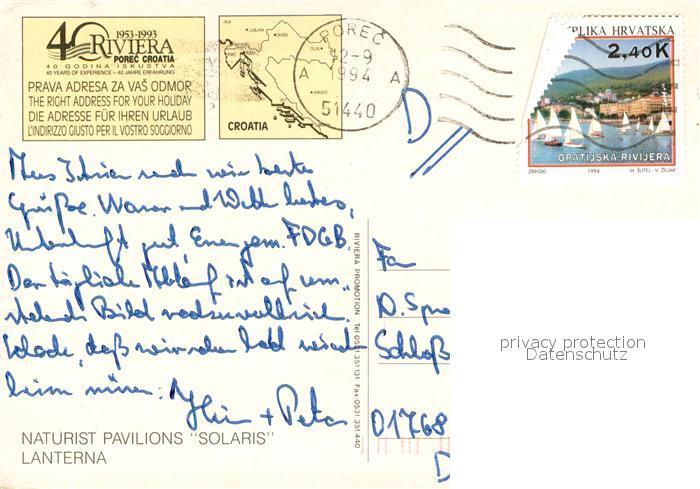 1953-1993
40 RIVIERA
POREČ CROATIA
40 GODINA ISKUSTVA
40 YEARS OF EXPERIENCE - 40 JAHRE ERFAHRUNG
PRAVA ADRESA ZA VAŠ ODMOR
THE RIGHT ADDRESS FOR YOUR HOLIDAY
DIE ADRESSE FÜR IHREN URLAUB
L'INDIRIZZO GIUSTO PER IL VOSTRO SOGGIORNO
CROATIA
POREČ
2-9
A 1994 A
51440
PLIKA HRVATSKA
2,40 K
OPATIJSKA RIVIJERA
ZRINSKI 1994. M. ŠUTEJ - V. ŽILJAK
D
Aus Istrien
Grüße. Wasser und
Unterkunft gut, FDGB.
Der tägliche Ablauf ist auf um
stehendem Bild
Schade, daß wir schon bald wieder
heim müssen.
+ Peter
RIVIERA PROMOTION Tel 0531 351131 Fax 0531 351440
Fa
D. Spre
Schloß
01768
D
NATURIST PAVILIONS "SOLARIS"
LANTERNA
privacy protection
Datenschutz